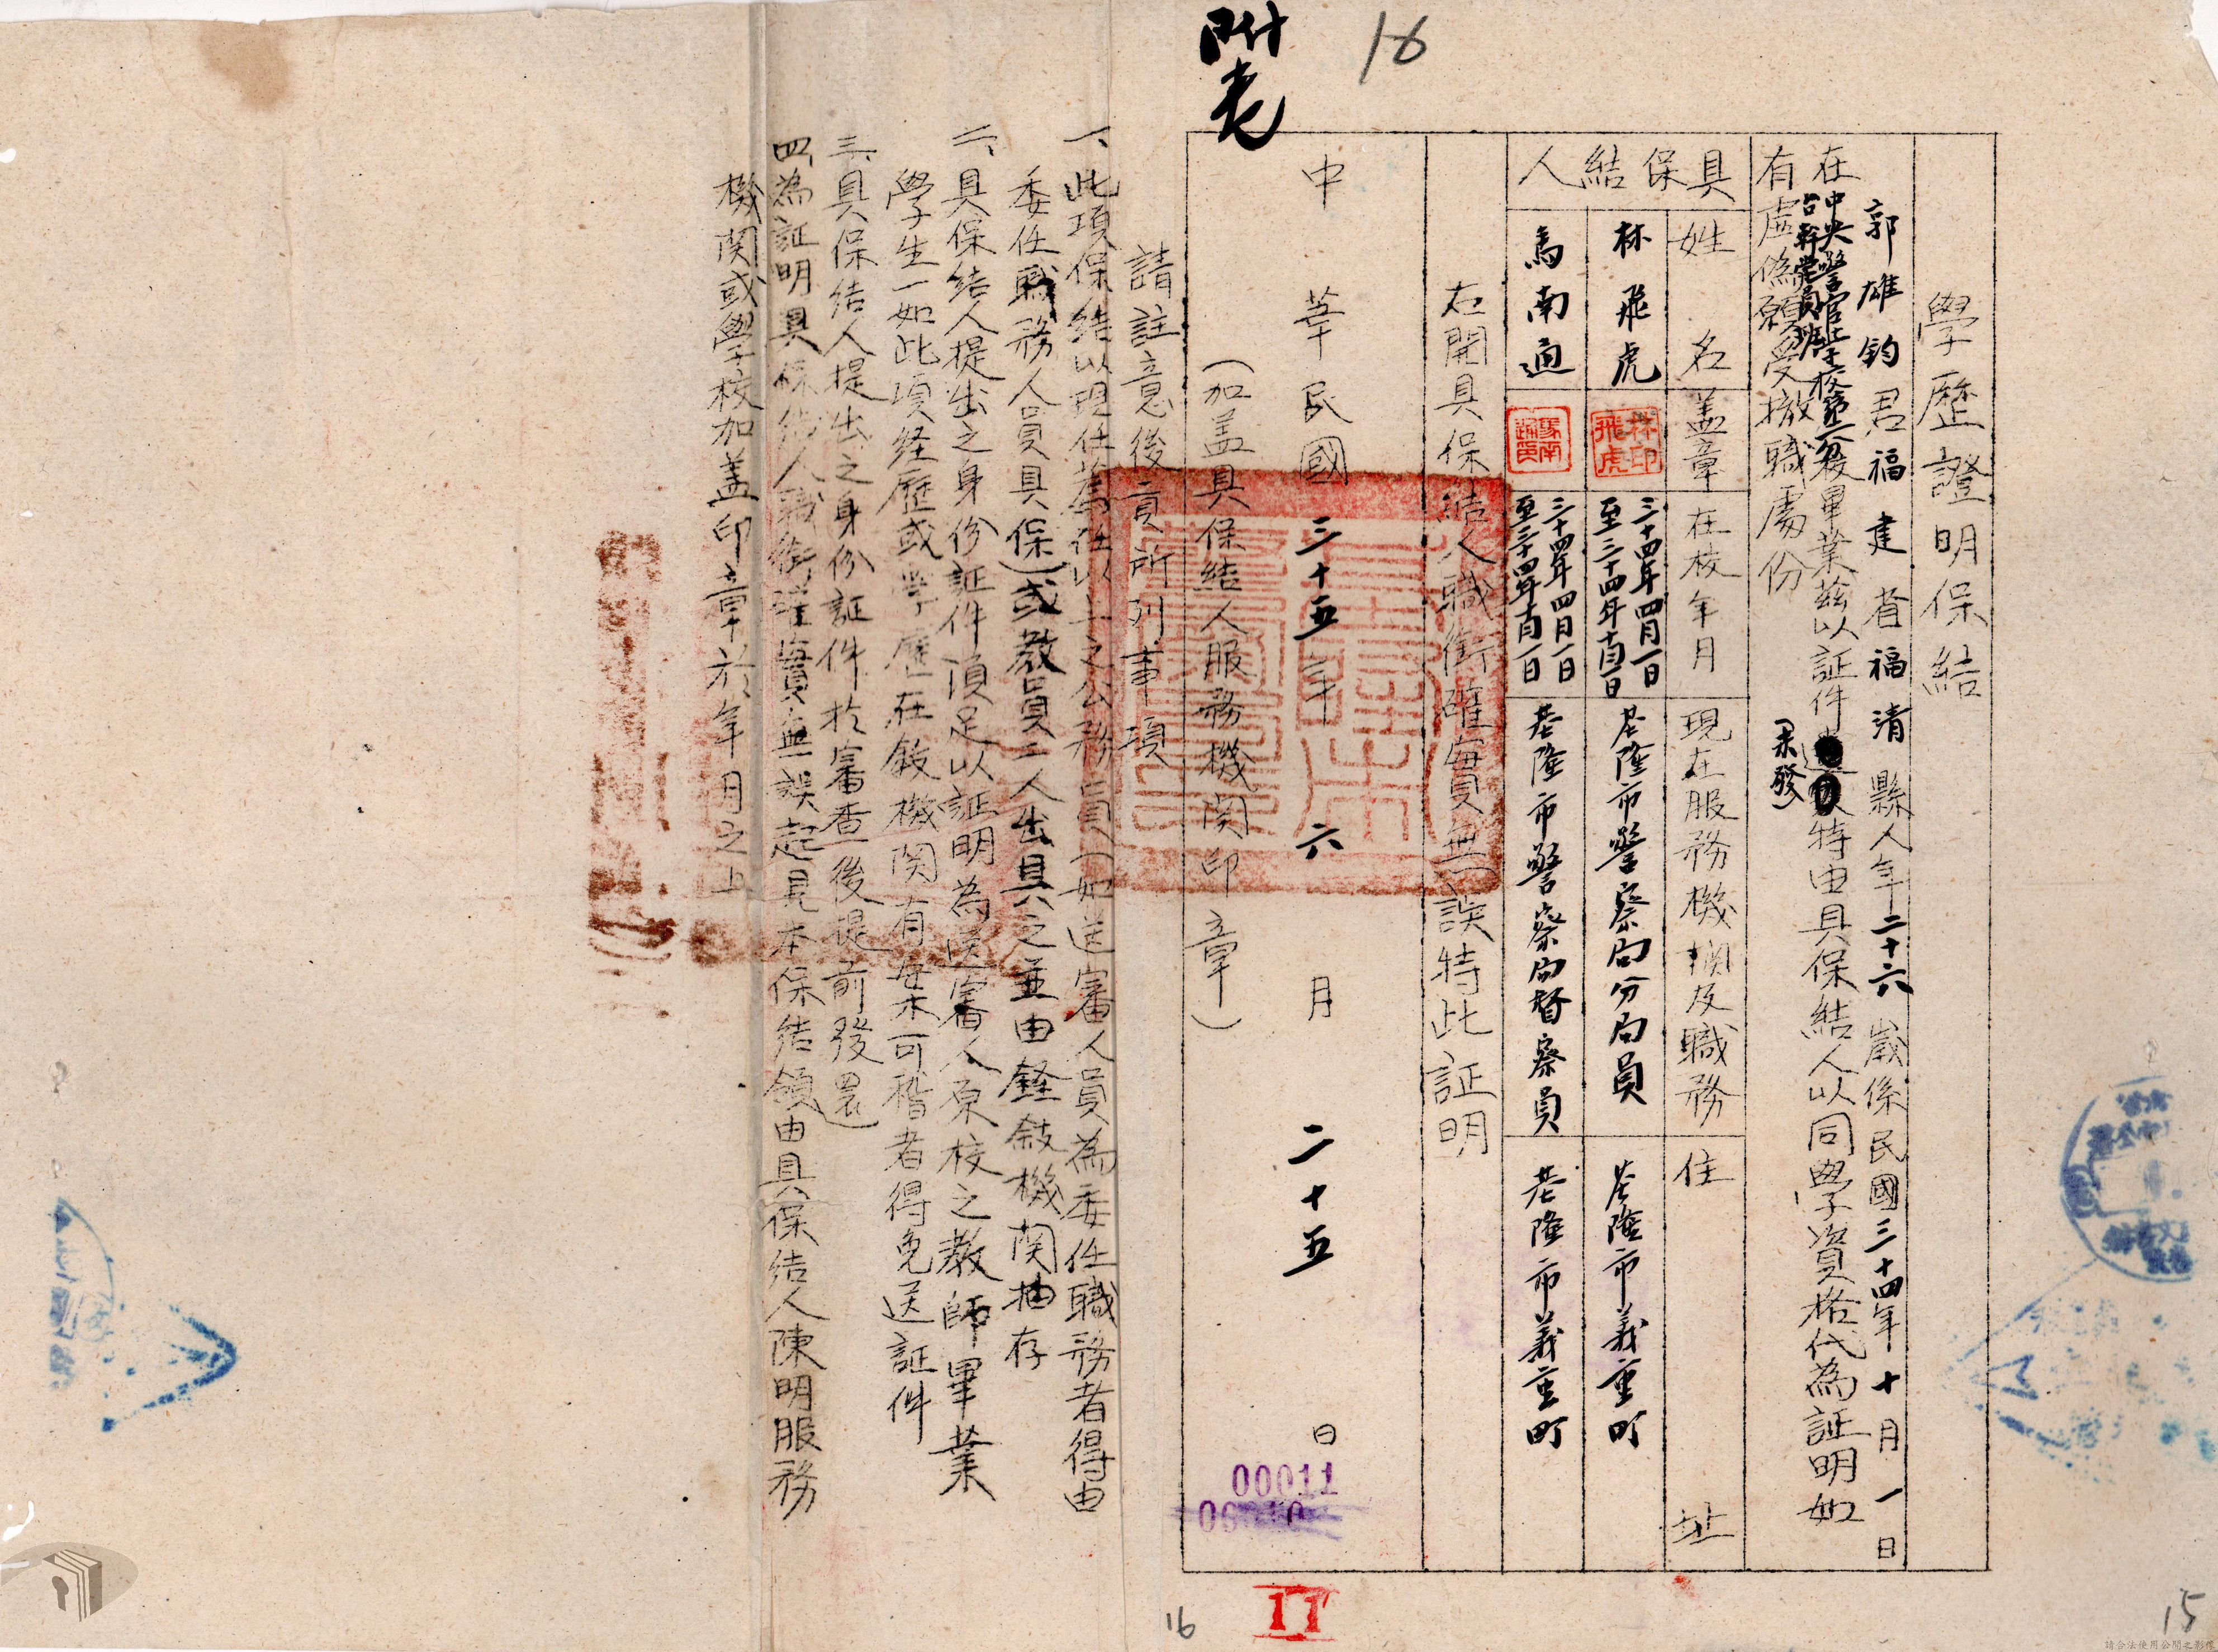 附
16
學歷證明保結
郭雄鈞君福建省福清縣人年二十六歲係民國三十四年十月一日
在中央警官學校第二分校畢業茲以証件遺失特由具保結人以同學資格代為証明如
台幹學員班
(未發)
有虛偽願受撤職處份
具保結人
姓名
蓋章
在校年月
現在服務機関及職務
住址
林飛虎
林印飛虎
三十四年四月一日
至三十四年十月一日
基隆市警察局分局員
基隆市義重町
馬南通
三十四年四月一日
至三十四年十月一日
基隆市警察局督察員
基隆市義重町
右開具保結人職銜確實無誤特此証明
中華民國三十五年六月二十五日
(加盖具保結人服務機関印章)
請註意後頁所列事項
一、此項保結以現任薦任以上之公務員(如送審人員為委任職務者得由
委任職務人員具保)或教員二人出具之並由銓敍機関抽存
二、具保結人提出之身份証件須足以証明為送審人原校之教師畢業
學生一如此項経歷或學歷在敍機関有案可稽者得免送証件
三、具保結人提出之身份証件於審查後提前發還
四、為証明具保結人職銜確實無誤起見本保結須由具保結人陳明服務
機関或學校加盖印章於年月之上
00011
11
16
15
請合法使用公開之影像